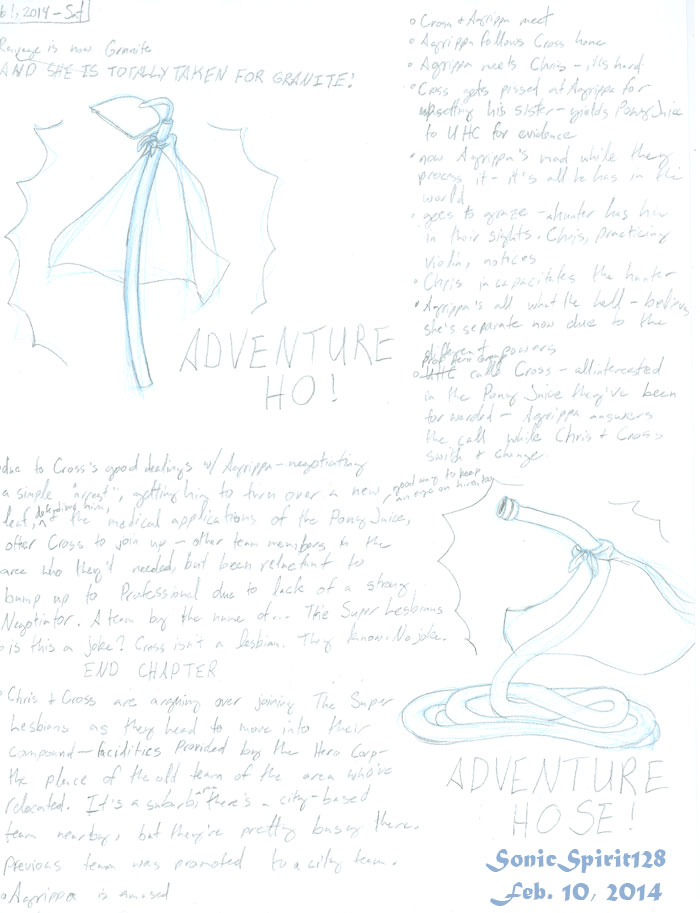 b 1, 2014 - Sat
Ravage is now Granite
AND SHE IS TOTALLY TAKEN FOR GRANITE!
ADVENTURE
HO!
• Cross & Agrippa meet
• Agrippa follows Cross home
• Agrippa meets Chris - it's hard
• Cross gets pissed at Agrippa for
upsetting his sister - yields Pony Juice
to UHC for evidence
• now Agrippa's mad while they
process it - it's all he has in the
world
• goes to graze - a hunter has him
in their sights. Chris, practicing
violin, notices
• Chris incapacitates the hunter
• Agrippa's all what the hell - believes
she's separate now due to the
different powers
• UHC calls Cross - all interested
in the Pony Juice they've been
forwarded - Agrippa answers
the call while Chris & Cross
switch & change.
due to Cross's good dealings w/ Agrippa - negotiating
a simple "arrest", getting him to turn over a new
good way to keep
an eye on him, too
leaf, & the medical applications of the Pony Juice,
offer Cross to join up - other team members in the
area who they'd needed, but been reluctant to
bump up to Professional due to lack of a strong
Negotiator. A team by the name of... The Super Lesbians
is this a joke? Cross isn't a lesbian. They know. No joke.
END CHAPTER
• Chris & Cross are arguing over joining The Super
Lesbians as they head to move into their
compound - facilities provided by the Hero Corp -
the place of the old team of the area who've
relocated. It's a suburb, there's a city-based
team nearby, but they're pretty busy there.
Previous team was promoted to a city team.
• Agrippa is amused
ADVENTURE
HOSE!
SonicSpirit128
Feb. 10, 2014